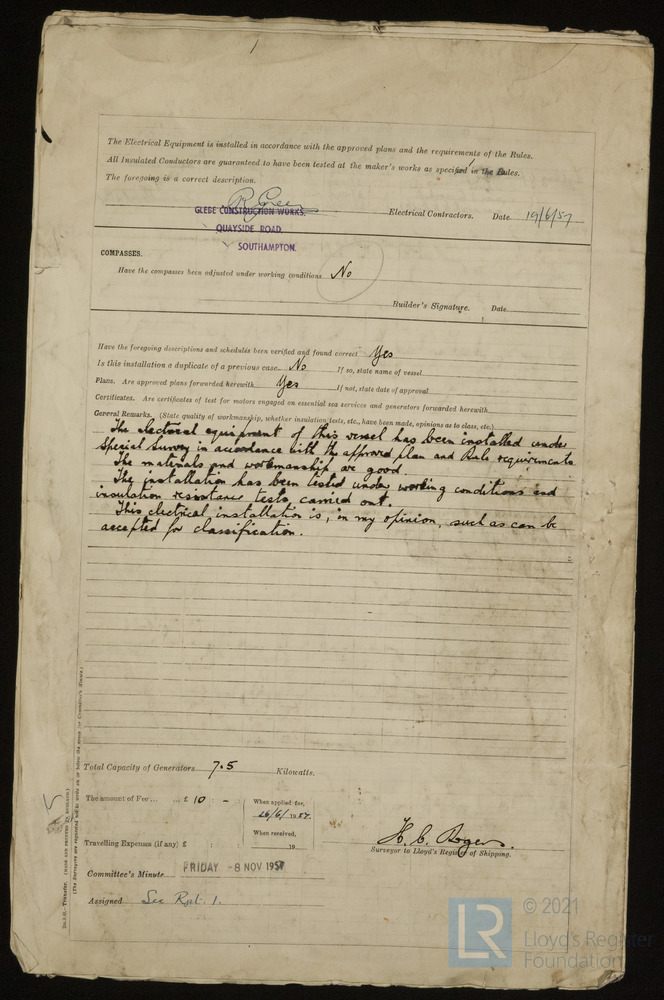 The Electrical Equipment is installed in accordance with the approved plans and the requirements of the Rules.
All Insulated Conductors are guaranteed to have been tested at the maker's works as specified in the Rules.
The foregoing is a correct description.
GLEBE CONSTRUCTION WORKS, Electrical Contractors. Date 19/6/57
QUAYSIDE ROAD,
SOUTHAMPTON.
COMPASSES.
Have the compasses been adjusted under working conditions No
Builder's Signature. Date
Have the foregoing descriptions and schedules been verified and found correct Yes
Is this installation a duplicate of a previous case No If so, state name of vessel
Plans. Are approved plans forwarded herewith Yes If not, state date of approval
Certificates. Are certificates of test for motors engaged on essential sea services and generators forwarded herewith
General Remarks. (State quality of workmanship, whether insulation tests, etc., have been made, opinions as to class, etc.)
The electrical equipment of this vessel has been installed under
Special Survey in accordance with the approved plan and Rule requirements
The materials and workmanship are good.
The installation has been tested under working conditions and
insulation resistance tests carried out.
This electrical installation is, in my opinion, such as can be
accepted for classification.
Total Capacity of Generators 7.5 Kilowatts.
The amount of Fee ... £ 10 : - When applied for,
26/6/1957
When received,
Travelling Expenses (if any) £ : : 19
H. C. Rogers.
Surveyor to Lloyd's Register of Shipping.
Committee's Minute FRIDAY -8 NOV 1957
Assigned See Rpt. 1.
5
(MADE AND PRINTED IN ENGLAND.)
LR © 2021
Lloyd's Register
Foundation